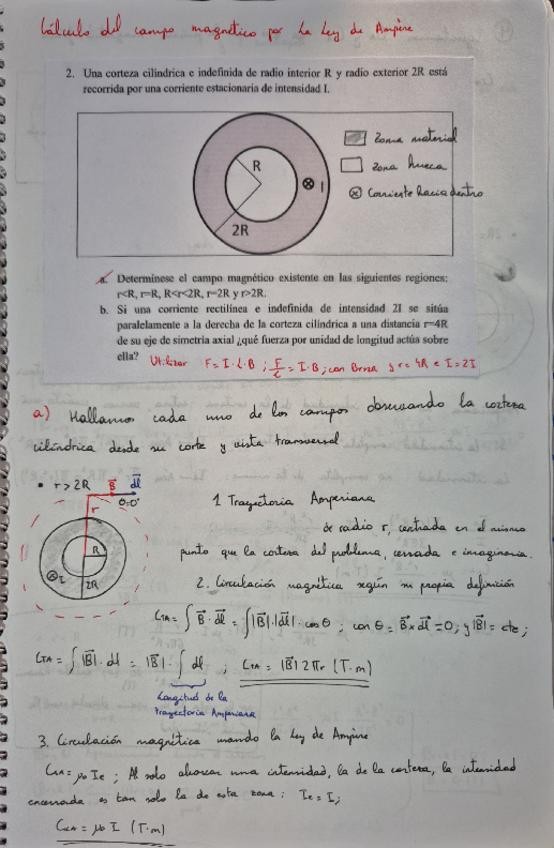 Cálculo del campo magnético por la Ley de Ampère
2. Una corteza cilíndrica e indefinida de radio interior R y radio exterior 2R está
recorrida por una corriente estacionaria de intensidad I.
Zona material
Zona hueca
⊗ Corriente hacia dentro
R
⊗ I
2R
a. Determínese el campo magnético existente en las siguientes regiones:
r<R, r=R, R<r<2R, r=2R y r>2R.
b. Si una corriente rectilínea e indefinida de intensidad 2I se sitúa
paralelamente a la derecha de la corteza cilíndrica a una distancia r=4R
de su eje de simetría axial ¿qué fuerza por unidad de longitud actúa sobre
ella? Utilizar F = I · L · B ; F/L = I · B ; con r = 4R e I = 2I
a) Hallamos cada uno de los campos observando la corteza
cilíndrica desde su corte y vista transversal
• r > 2R
B dl
θ=0°
r
R
⊗ I
2R
1 Trayectoria Amperiana
de radio r, centrada en el mismo
punto que la corteza del problema, cerrada e imaginaria.
2. Circulación magnética según su propia definición
CTA = ∫ B · dl = ∫ |B| · |dl| · cos θ ; con θ = B x dl = 0 ; y |B| = cte ;
CTA = ∫ |B| · dl = |B| · ∫ dl ; CTA = |B| 2πr (T·m)
Longitud de la
Trayectoria Amperiana
3. Circulación magnética usando la Ley de Ampère
= μ₀ Ie ; Al solo abarcar una intensidad, la de la corteza, la intensidad
encerrada es tan solo la de esta zona : Ie = I ;
= μ₀ I (T·m)